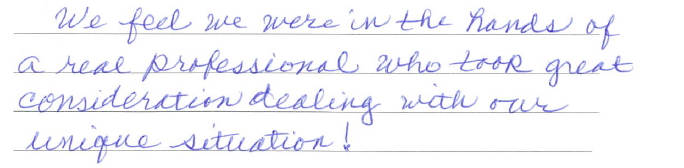 We feel we were in the hands of
a real professional who took great
consideration dealing with our
unique situation!